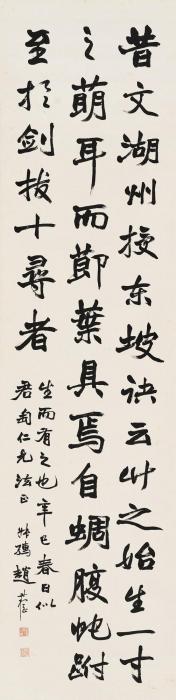 昔文湖州授东坡诀云竹之始生一寸
之萌耳而節葉具焉自蜩腹蛇跗
至於劍拔十尋者
生而有之也辛巳春日似
君匋仁兄法正 林鶴趙